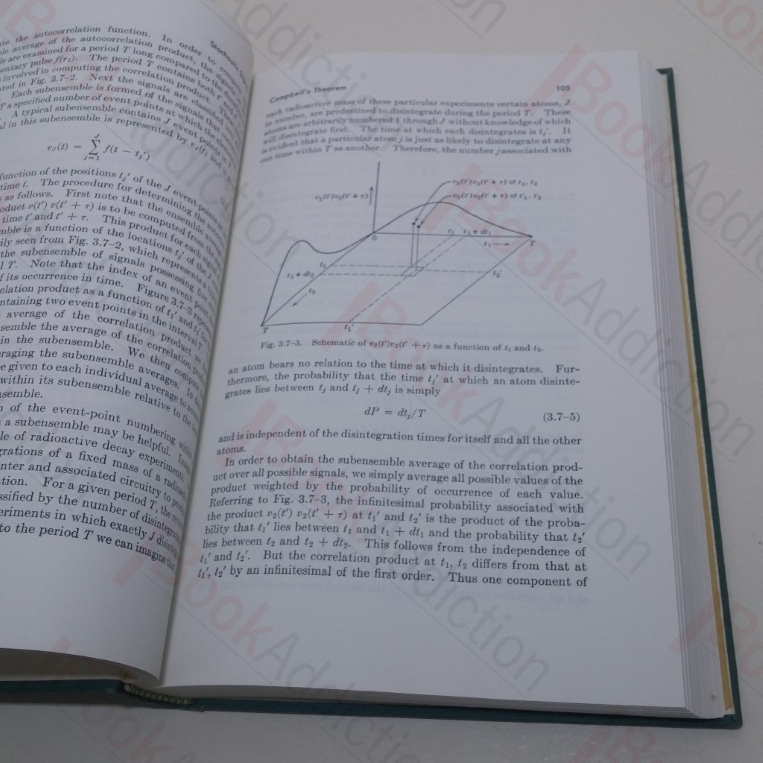 the autocorrelation function. In order to
average of the autocorrelation product, the
are examined for a period T long compared to the
pulse f(r₁). The period T contains both
involved in computing the correlation product
in Fig. 3.7-2. Next the signals are
Each subensemble is formed of the signals that
a specified number of event points at which the
A typical subensemble contains J event points
in this subensemble is represented by
v_J(t) = Σ f(t − t_j′)
J
j=1
function of the positions t_j′ of the J event points
time t. The procedure for determining the
as follows. First note that the ensemble
v(t′) v(t′ + τ) is to be computed from the
time t′ and t′ + τ. This product for each
is a function of the locations t_j′ of the
seen from Fig. 3.7-2, which represents
the subensemble of signals possessing
T. Note that the index of an event point
its occurrence in time. Figure 3.7-3
product as a function of t₁′ and
two event points in the interval T
average of the correlation product
semble the average of the correlation
in the subensemble. We then
raging the subensemble averages. In
e given to each individual average
within its subensemble relative to the
semble.
of the event-point numbering
a subensemble may be helpful.
le of radioactive decay experiments
grations of a fixed mass of a
nter and associated circuitry to
ation. For a given period T, the
ssified by the number of
eriments in which exactly J
to the period T we can imagine
Campbell's Theorem 103
each radioactive mass of these particular experiments certain atoms, J
in number, are predestined to disintegrate during the period T. These
atoms are arbitrarily numbered 1 through J without knowledge of which
will disintegrate first. The time at which each disintegrates is t_j′. It
is evident that a particular atom j is just as likely to disintegrate at any
one time within T as another. Therefore, the number j associated with
v₂(t′)v₂(t′ + τ)
v₂(t′)v₂(t′ + τ) of t₁, t₂
v₂(t′)v₂(t′ + τ) of t₁′, t₂′
0
t₁
t₁ + dt₁
T
t₁
t₂
t₂ + dt₂
t₂′
t₂
T
t₁′
Fig. 3.7-3. Schematic of v₂(t′)v₂(t′ + τ) as a function of t₁ and t₂.
an atom bears no relation to the time at which it disintegrates. Fur-
thermore, the probability that the time t_j′ at which an atom disinte-
grates lies between t_j and t_j + dt_j is simply
dP = dt_j/T (3.7–5)
and is independent of the disintegration times for itself and all the other
atoms.
In order to obtain the subensemble average of the correlation prod-
uct over all possible signals, we simply average all possible values of the
product weighted by the probability of occurrence of each value.
Referring to Fig. 3.7-3, the infinitesimal probability associated with
the product v₂(t′) v₂(t′ + τ) at t₁′ and t₂′ is the product of the proba-
bility that t₁′ lies between t₁ and t₁ + dt₁ and the probability that t₂′
lies between t₂ and t₂ + dt₂. This follows from the independence of
t₁′ and t₂′. But the correlation product at t₁, t₂ differs from that at
t₁′, t₂′ by an infinitesimal of the first order. Thus one component of
BookAddiction